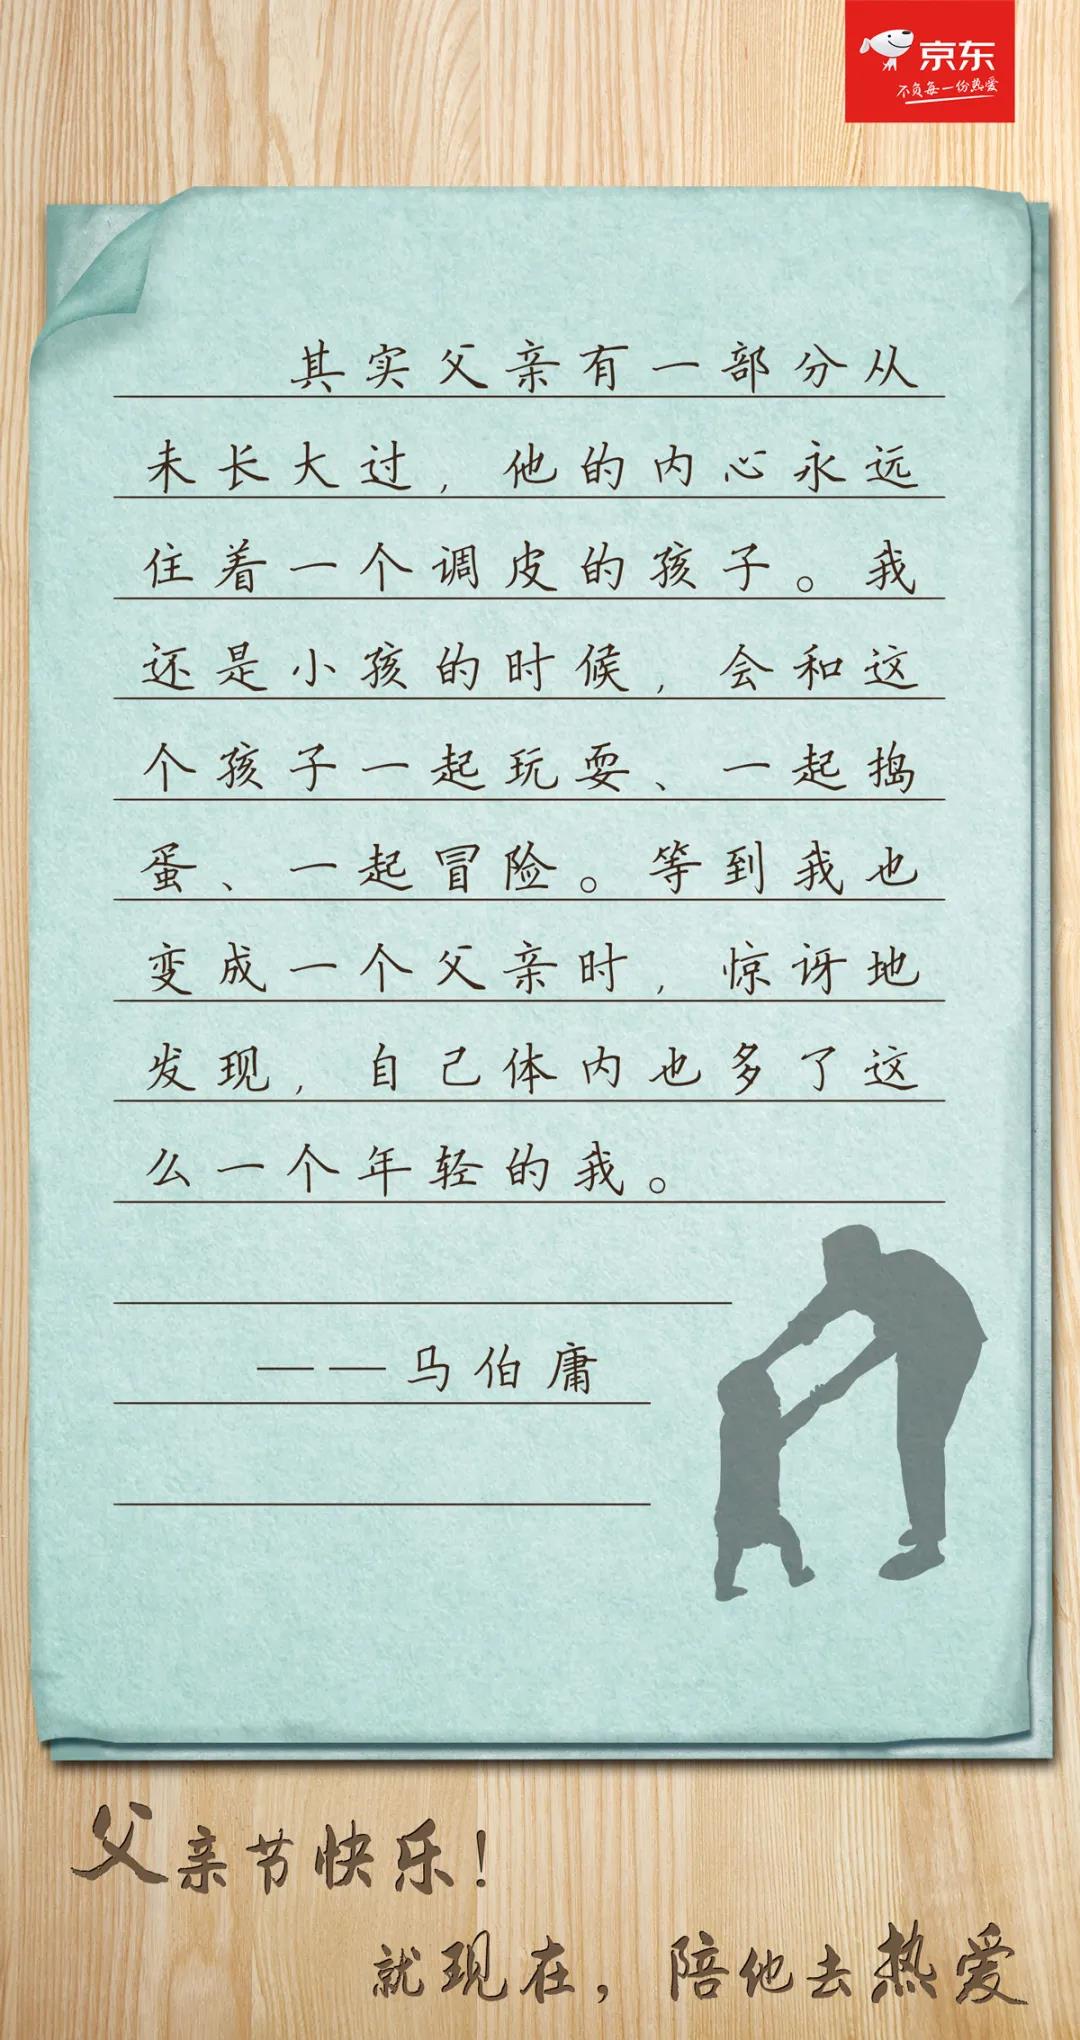 京东
不负每一份热爱
其实父亲有一部分从
未长大过，他的内心永远
住着一个调皮的孩子。我
还是小孩的时候，会和这
个孩子一起玩耍、一起捣
蛋、一起冒险。等到我也
变成一个父亲时，惊讶地
发现，自己体内也多了这
么一个年轻的我。
——马伯庸
父亲节快乐！
就现在，陪他去热爱